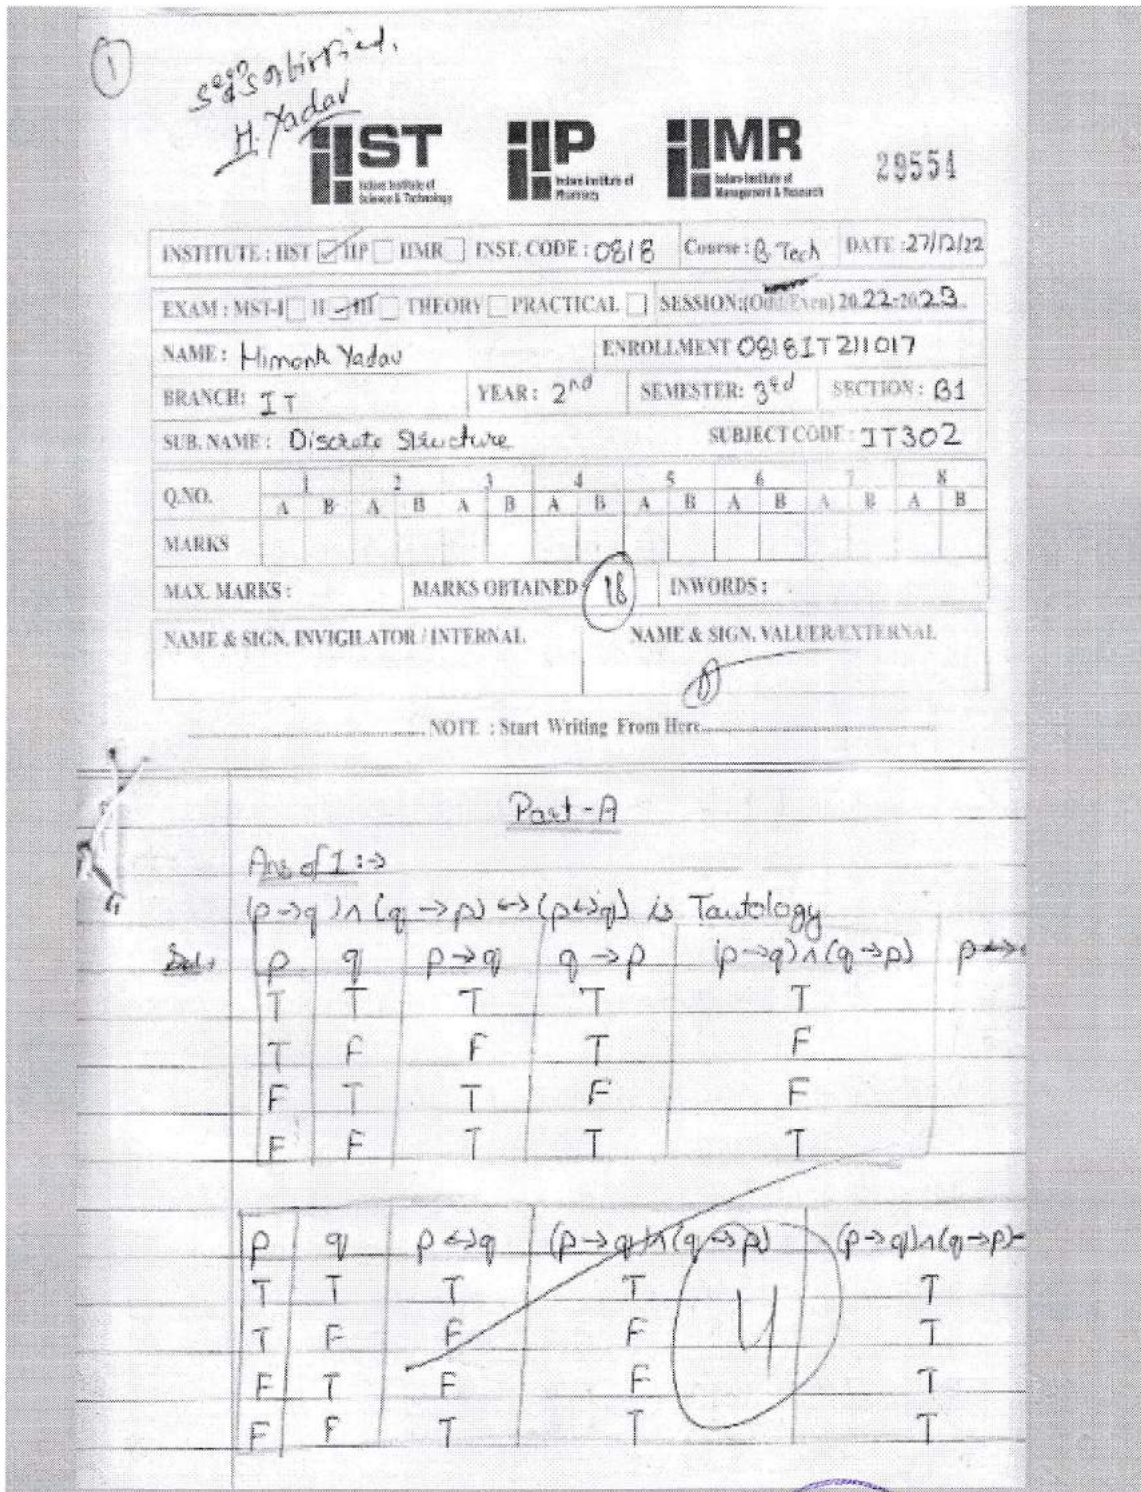 1
seen
H. Yadav
IIST IIP IIMR
Indore Institute of Indore Institute of Indore Institute of
Science & Technology Pharmacy Management & Research
29554
INSTITUTE : IIST ☑ IIP ☐ IIMR ☐ INST. CODE : 0818 Course : B.Tech DATE : 27/12/22
EXAM : MST-I ☐ II ☑ III ☐ THEORY ☐ PRACTICAL ☐ SESSION:(Odd/Even) 2022-2023
NAME : Himank Yadav ENROLLMENT 0818IT211017
BRANCH: IT YEAR: 2nd SEMESTER: 3rd SECTION : B1
SUB. NAME : Discrete Structure SUBJECT CODE : IT302
Q.NO. 1 2 3 4 5 6 7 8
A B A B A B A B A B A B A B A B
MARKS
MAX. MARKS : MARKS OBTAINED : 18 INWORDS :
NAME & SIGN. INVIGILATOR / INTERNAL NAME & SIGN. VALUER/EXTERNAL
NOTE : Start Writing From Here
Part - A
Ans of 1 :→
(p→q)∧(q→p)↔(p↔q) is Tautology
Sol: p q p→q q→p (p→q)∧(q→p) p↔
T T T T T
T F F T F
F T T F F
F F T T T
p q p↔q (p→q)∧(q→p) (p→q)∧(q→p)
T T T T T
T F F F T
F T F F T
F F T T T
4